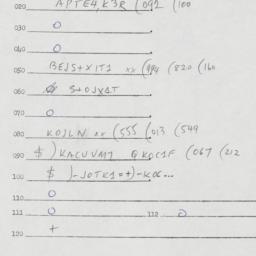 020 APTE4,K3R (092 (100
030 O
040 O
050 BEJS+XIT1 xx (994 (820 (160
060 S+OJXAT
070 O
080 KOJLN xx (555 (013 (549
090 $ )KACUVM7 QKOC1F (067 (212
100 $ )-JOTK1=+)-KO6...
110 O
111 O 112 O
120 +